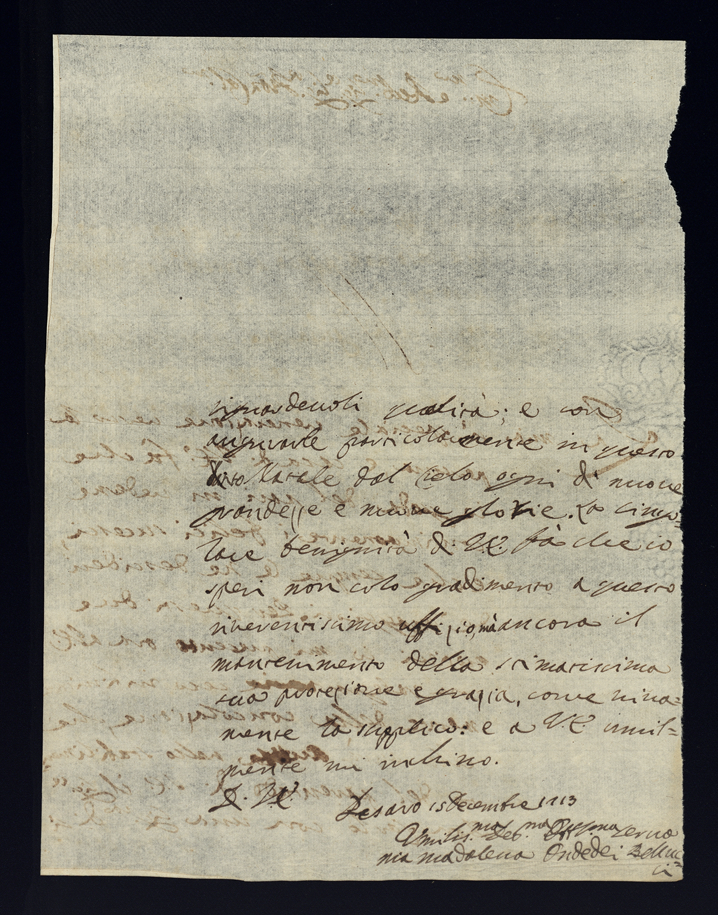 riguardevoli qualità; e con
augurarle particolarmente in questo
Natale dal Cielo ogni dì nuove
grandezze e nuove glorie. La singo-
lare benignità di V.E. fà che io
speri non solo gradimento a questo
riverentissimo uffizio, mà ancora il
mantenimento della stimatissima
sua protezione e grazia, come viva=
mente la supplico: e a V.E. umil=
mente mi inchino.
D. V.E.
Pesaro 15 Decembre 1713
Umilis.ma Dev.ma Oss.ma serva
Madalena Ondedei Bellu